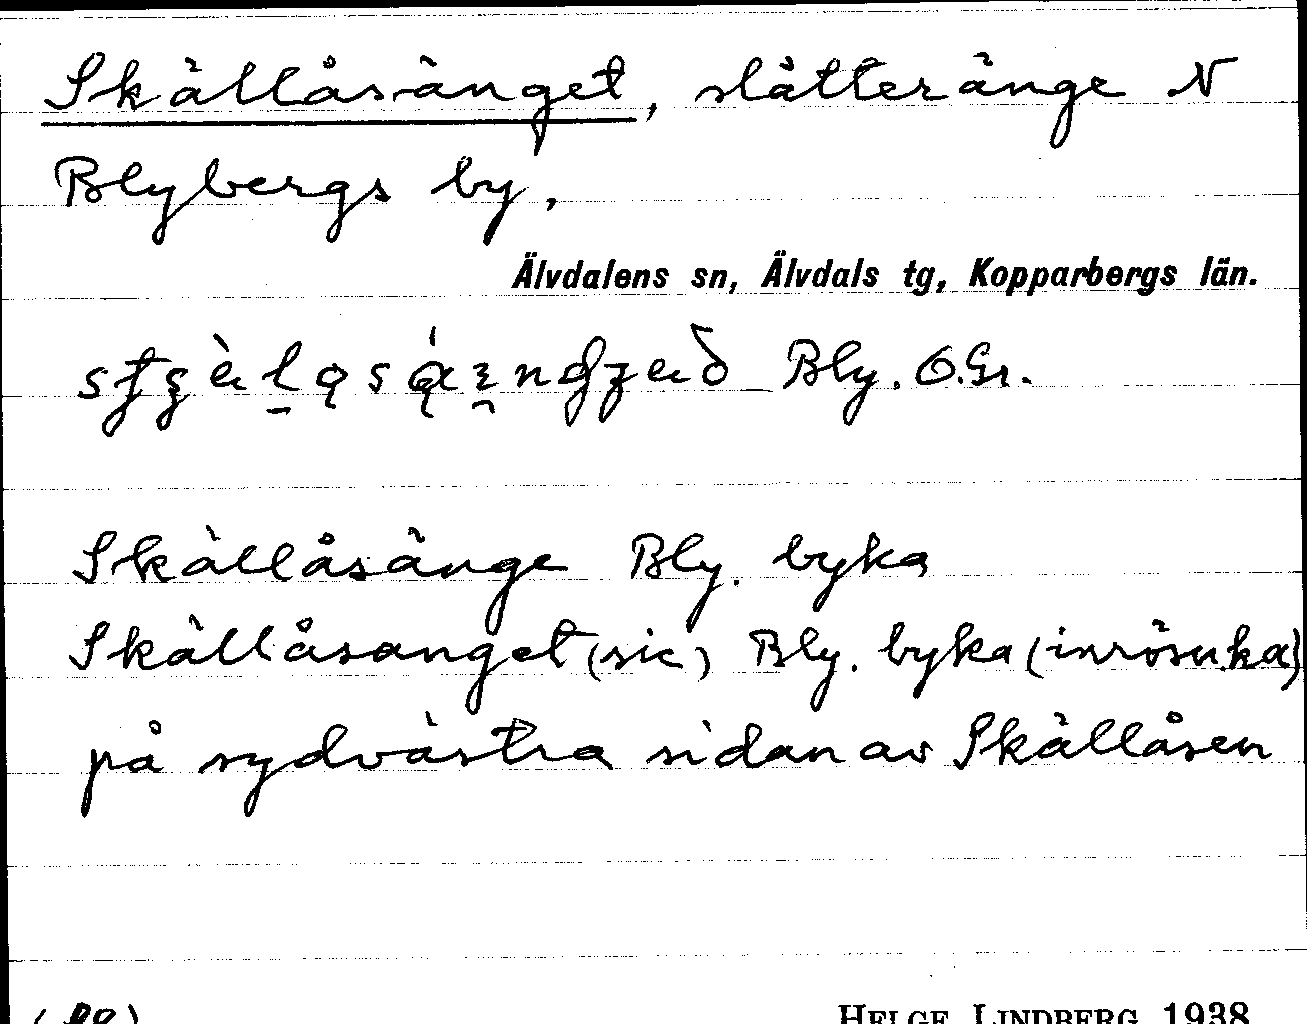 Skällåsänget, slåtteränge N
Blybergs by,
Älvdalens sn, Älvdals tg, Kopparbergs län.
Bly. O.Gr.
Skällåsänge Bly. byka
Skällåsanget (sic) Bly. byka (inrösn.ka)
på sydvästra sidan av Skällåsen
HELGE LINDBERG 1938